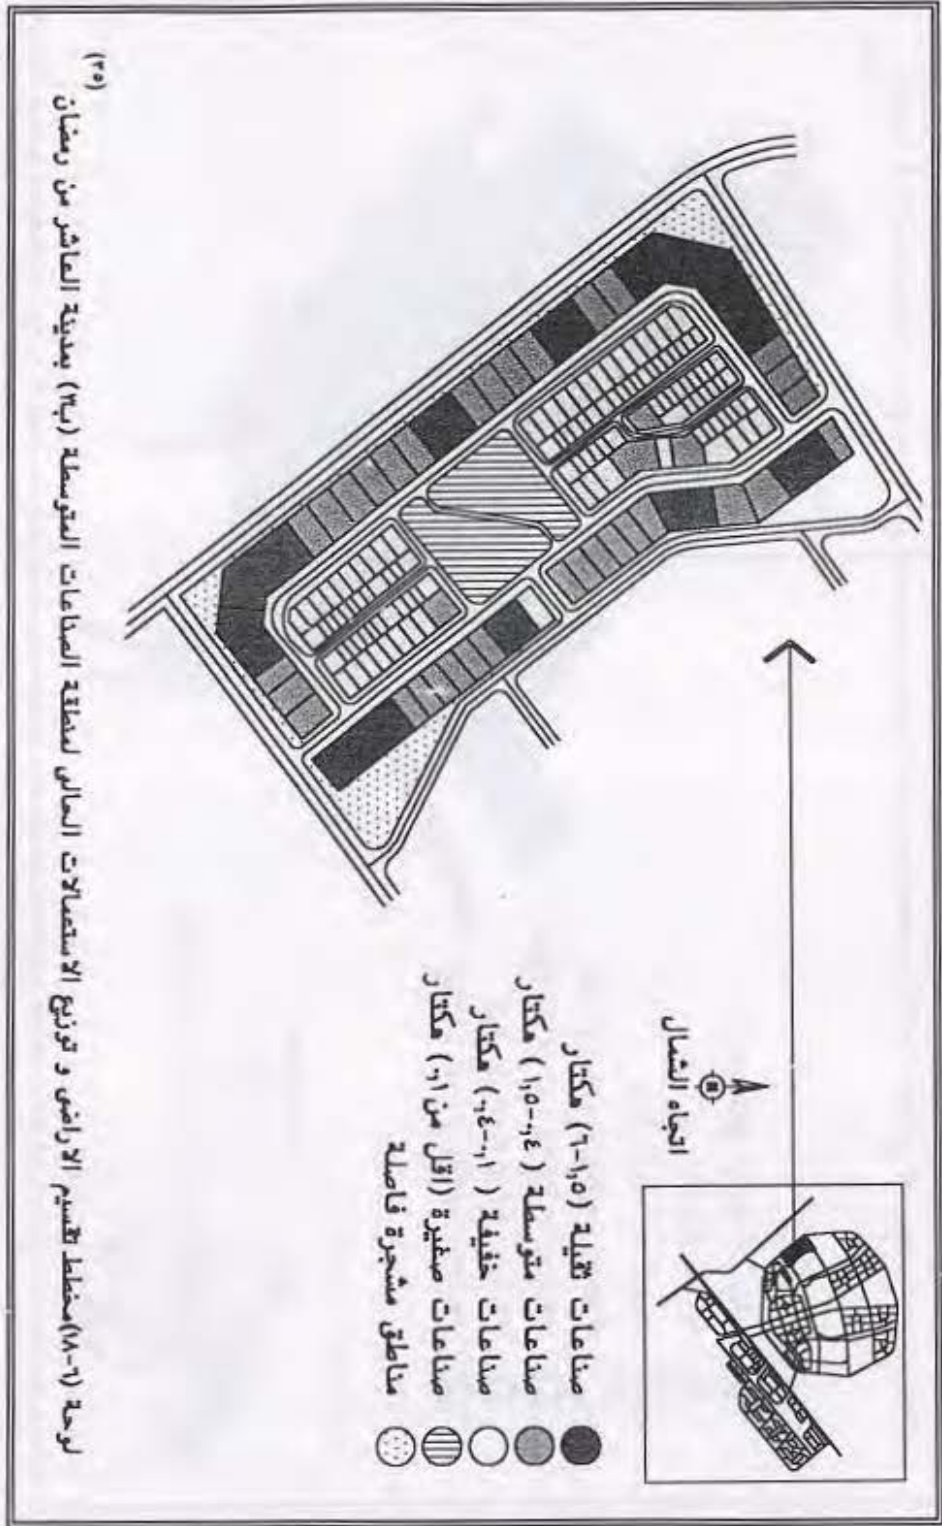 اتجاه الشمال
صناعات ثقيلة (١,٥-٦) هكتار
صناعات متوسطة (٠,٤-١,٥) هكتار
صناعات خفيفة (٠,١-٠,٤) هكتار
صناعات صغيرة (اقل من ٠,١) هكتار
مناطق مشجرة فاصلة
لوحة (٦-١٨) مخطط تقسيم الاراضى و توزيع الاستعمالات الحالى لمنطقة الصناعات المتوسطة (ب٣) بمدينة العاشر من رمضان (٣٥)